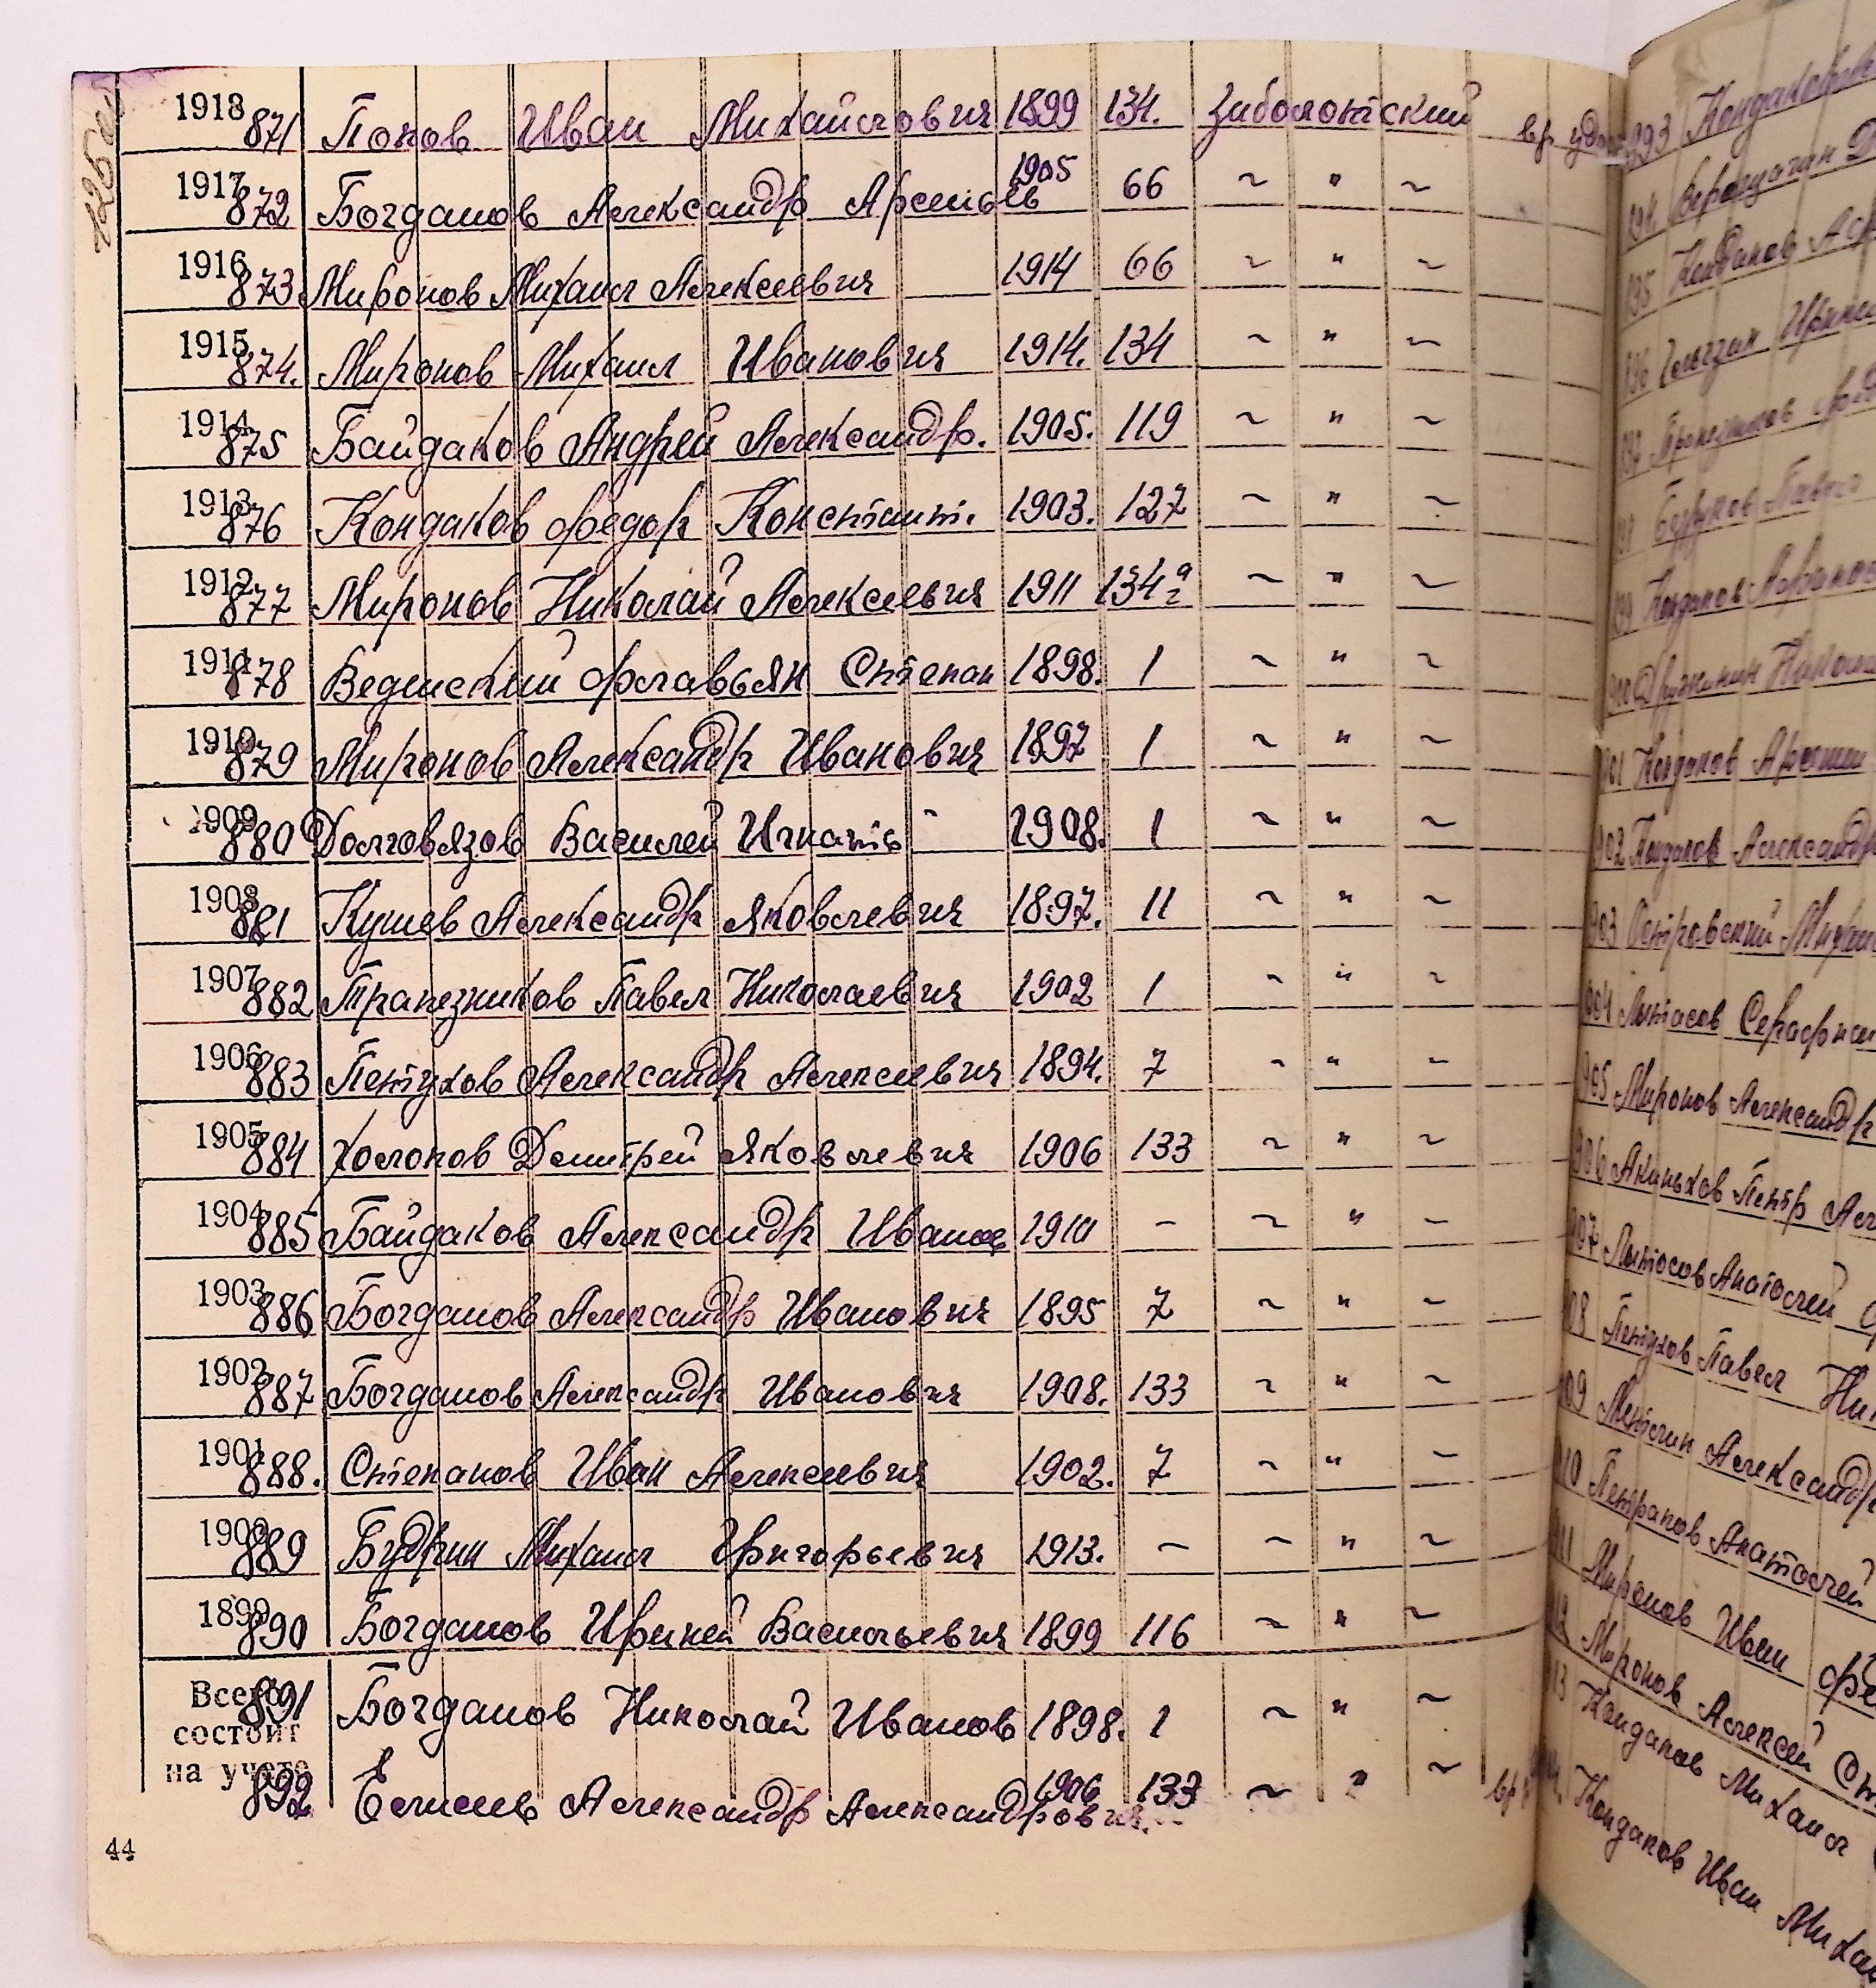 1918 871 Попов Иван Михайлович 1899 134. Заболотский вр
1917 872 Богданов Александр Арсеньев 1905 66 ~ " ~
1916 873 Миронов Михаил Алексеевич 1914 66 ~ " ~
1915 874. Миронов Михаил Иванович 1914. 134 ~ " ~
1914 875 Байдаков Андрей Александр. 1905. 119 ~ " ~
1913 876 Кондаков Федор Констант. 1903. 127 ~ " ~
1912 877 Миронов Николай Алексеевич 1911 134 ~ " ~
1911 878 Веденский Флавьян Степан 1898. 1 ~ " ~
1910 879 Миронов Александр Иванович 1897 1 ~ " ~
1909 880 Долговязов Василей Игнать 1908. 1 ~ " ~
1908 881 Кушев Александр Яковлевич 1897. 11 ~ " ~
1907 882 Трапезников Павел Николаевич 1902 1 ~ " ~
1906 883 Петухов Александр Алексеевич 1894. 7 ~ " ~
1905 884 Холопов Дмитрей Яковлевич 1906 133 ~ " ~
1904 885 Байдаков Александр Иванов 1910 - ~ " ~
1903 886 Богданов Александр Иванович 1895 7 ~ " ~
1902 887 Богданов Александр Иванович 1908. 133 ~ " ~
1901 888. Степанов Иван Алексеевич 1902. 7 ~ " ~
1900 889 Будрин Михаил Григорьевич 1913. - ~ " ~
1899 890 Богданов Ириней Васильевич 1899 116 ~ " ~
Всего 891 Богданов Николай Иванов 1898. 1 ~ " ~
состоит
на учете
892 Елисеев Александр Александрович. 1906 133 ~ " ~ вр
44
893 Кондаков
894 Верещагин
895 Кайданов
896 Ирине
897 Трапезников
898 Павел
899 Кондаков
900 Дружинин Никола
901 Кондаков Арсений
902 Кондаков Александр
903 Островский Михаи
904 Лытасов Серафим
905 Миронов Александр
906 Петр
907 Лытосов Анатолей
908 Петухов Павел Ни
909 Метлин Александр
910 Петраков Анатолей
911 Миронов Иван Фе
912 Миронов Алексей Ст
913 Кондаков Михаил
914. Кондаков Иван Миха